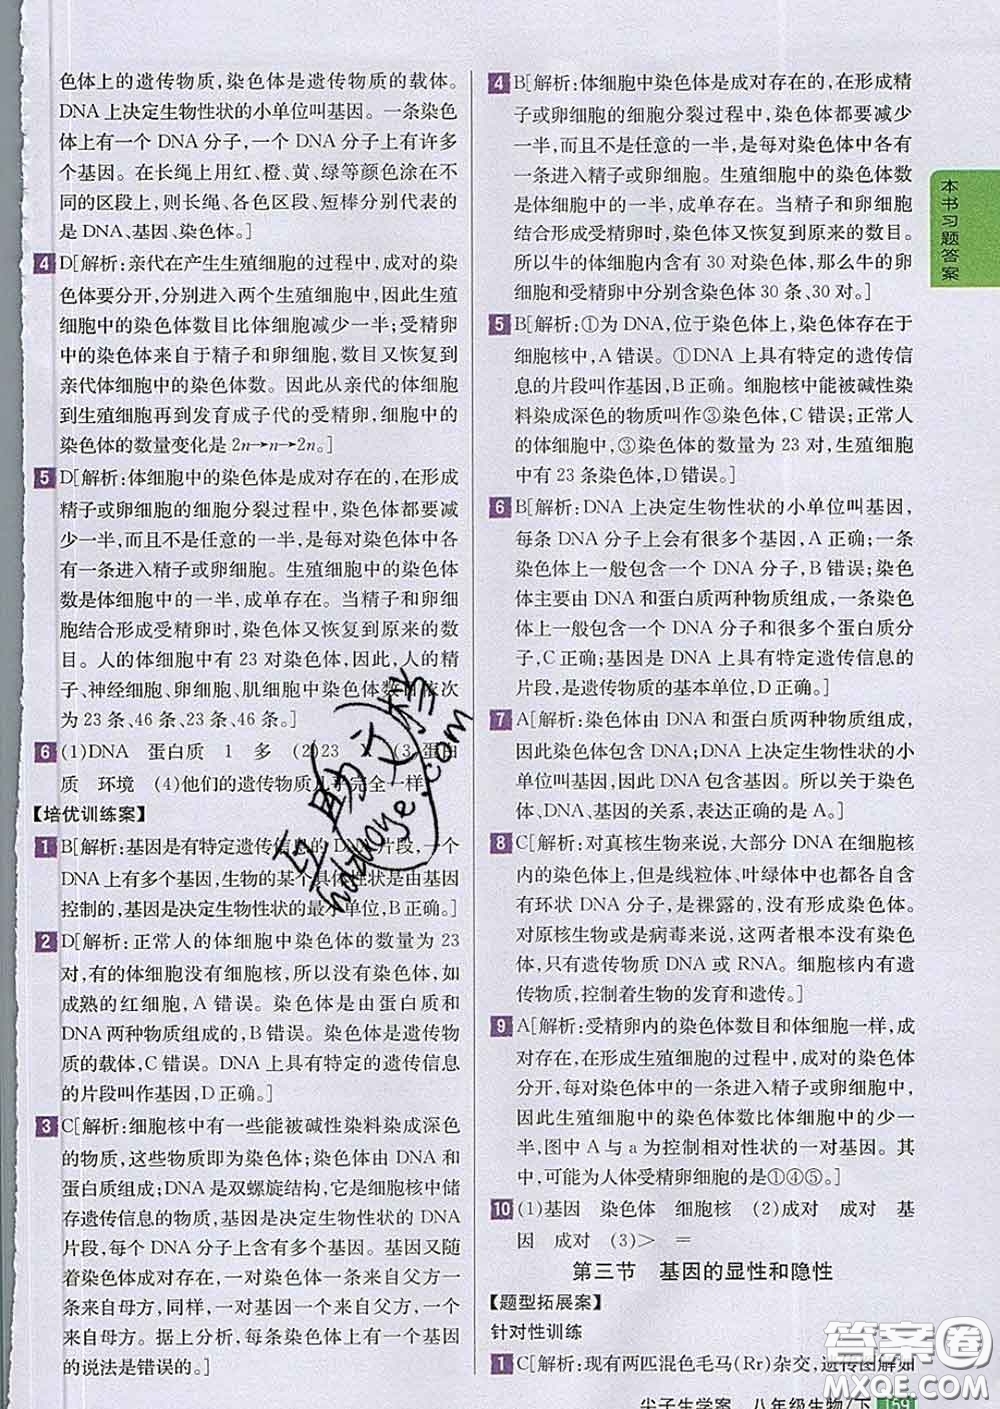 色体上的遗传物质,染色体是遗传物质的载体。
DNA 上决定生物性状的小单位叫基因。一条染色
体上有一个 DNA 分子,一个 DNA 上有许多
个基因。在长绳上用红、橙、黄、绿等颜色涂在不
同的区段上,则长绳、各色区段、短棒分别代表的
是 DNA、基因、染色体。]
4 D[解析:亲代在产生生殖细胞的过程中,成对的染
色体要分开,分别进入两个生殖细胞中,因此生殖
细胞中的染色体数目比体细胞减少一半;受精卵
中的染色体来自于精子和卵细胞,数目又恢复到
亲代体细胞中的染色体数。因此从亲代的体细胞
到生殖细胞再到发育成子代的受精卵,细胞中的
染色体的数量变化是 2n→n→2n。]
5 D[解析:体细胞中的染色体是成对存在的,在形成
精子或卵细胞的细胞分裂过程中,染色体都要减少
一半,而且不是任意的一半,是每对染色体中各
有一条进入精子或卵细胞。生殖细胞中的染色体
数是体细胞中的一半,成单存在。当精子和卵细
胞结合形成受精卵时,染色体又恢复到原来的数
目。人的体细胞中有 23 对染色体,因此,人的精
子、神经细胞、卵细胞、肌细胞中染色体数目依次
为 23 条、46 条、23 条、46 条。]
6 (1)DNA 蛋白质 1 多 (2)23 (3)蛋白
质 环境 (4)他们的遗传物质几乎完全一样
【培优训练案】
1 B[解析:基因是有特定遗传信息的 DNA 片段,一个
DNA 上有多个基因,生物的某个具体性状是由基因
控制的,基因是决定生物性状的最小单位,B 正确。]
2 D[解析:正常人的体细胞中染色体的数量为 23
对,有的体细胞没有细胞核,所以没有染色体,如
成熟的红细胞,A 错误。染色体是由蛋白质和
DNA 两种物质组成的,B 错误。染色体是遗传物
质的载体,C 错误。DNA 上具有特定的遗传信息
的片段叫作基因,D 正确。]
3 C[解析:细胞核中有一些能被碱性染料染成深色
的物质,这些物质即为染色体;染色体由 DNA
和蛋白质组成;DNA 是双螺旋结构,它是细胞中储
存遗传信息的物质,基因是决定生物性状的 DNA
片段,每个 DNA 分子上含有多个基因。基因又随
着染色体成对存在,一条染色体一条来自父方一
条来自母方,同样,一对基因一个来自父方,一个
来自母方。据上分析,每条染色体上只有一个基因
的说法是错误的。]
4 B[解析:体细胞中染色体是成对存在的,在形成精
子或卵细胞的细胞分裂过程中,染色体都要减少
一半,而且不是任意的一半,是每对染色体中各有
一条进入精子或卵细胞。生殖细胞中的染色体数
是体细胞中的一半,成单存在。当精子和卵细胞
结合形成受精卵时,染色体又恢复到原来的数目。
所以牛的体细胞中含有 30 对染色体,那么牛的卵
细胞和受精卵中分别含染色体 30 条、30 对。]
5 B[解析:①为 DNA,位于染色体上,染色体存在于
细胞核中,A 错误。①DNA 上具有特定的遗传信
息的片段叫作基因,B 正确。细胞核中能被碱性染
料染成深色的物质叫作③染色体,C 错误;正常人
的体细胞中,③染色体的数量为 23 对,生殖细胞
中有 23 条染色体,D 错误。]
6 B[解析:DNA 上决定生物性状的小单位叫基因,
每条 DNA 分子会有很多个基因,A 正确;一条
染色体上一般包含一个 DNA 分子,B 错误;染色
体主要由 DNA 和蛋白质两种物质组成,一条染色
体上一般包含一个 DNA 分子和很多个蛋白质分
子,C 正确;基因是 DNA 上具有特定遗传信息的
片段,是遗传物质的基本单位,D 正确。]
7 A[解析:染色体由 DNA 和蛋白质两种物质组成,
因此染色体包含 DNA;DNA 上决定生物性状的小
单位叫基因,因此 DNA 包含基因。所以关于染色
体、DNA、基因的关系,表达正确的是 A。]
8 C[解析:对真核生物来说,大部分 DNA 在细胞核
内的染色体上,但是线粒体、叶绿体中也都各自含
有环状 DNA 分子,是裸露的,没有形成染色体。
对原核生物或是病毒来说,这两者根本没有染色
体,只有遗传物质 DNA 或 RNA。细胞核内有遗
传物质,控制着生物的发育和遗传。]
9 A[解析:受精卵内的染色体数目和体细胞一样,成
对存在,在形成生殖细胞的过程中,成对的染色体
分开,分别染色体中的一条进入精子或卵细胞中,
因此生殖细胞中的染色体数比体细胞中的少一
半,图中 A 与 a 为控制相对性状的一对基因。其
中,可能为人体受精卵细胞的是①④⑤。]
10 (1)基因 染色体 细胞核 (2)成对 成对 基
因 成对 (3)> =
第三节 基因的显性和隐性
【题型拓展案】
针对性训练
1 C[解析:现有两匹混色毛马(Rr)杂交,遗传图解如
本书习题答案
尖子生学案 八年级生物/下 159
互助文档
hdzhoye.com
答案圈
MXQE.COM